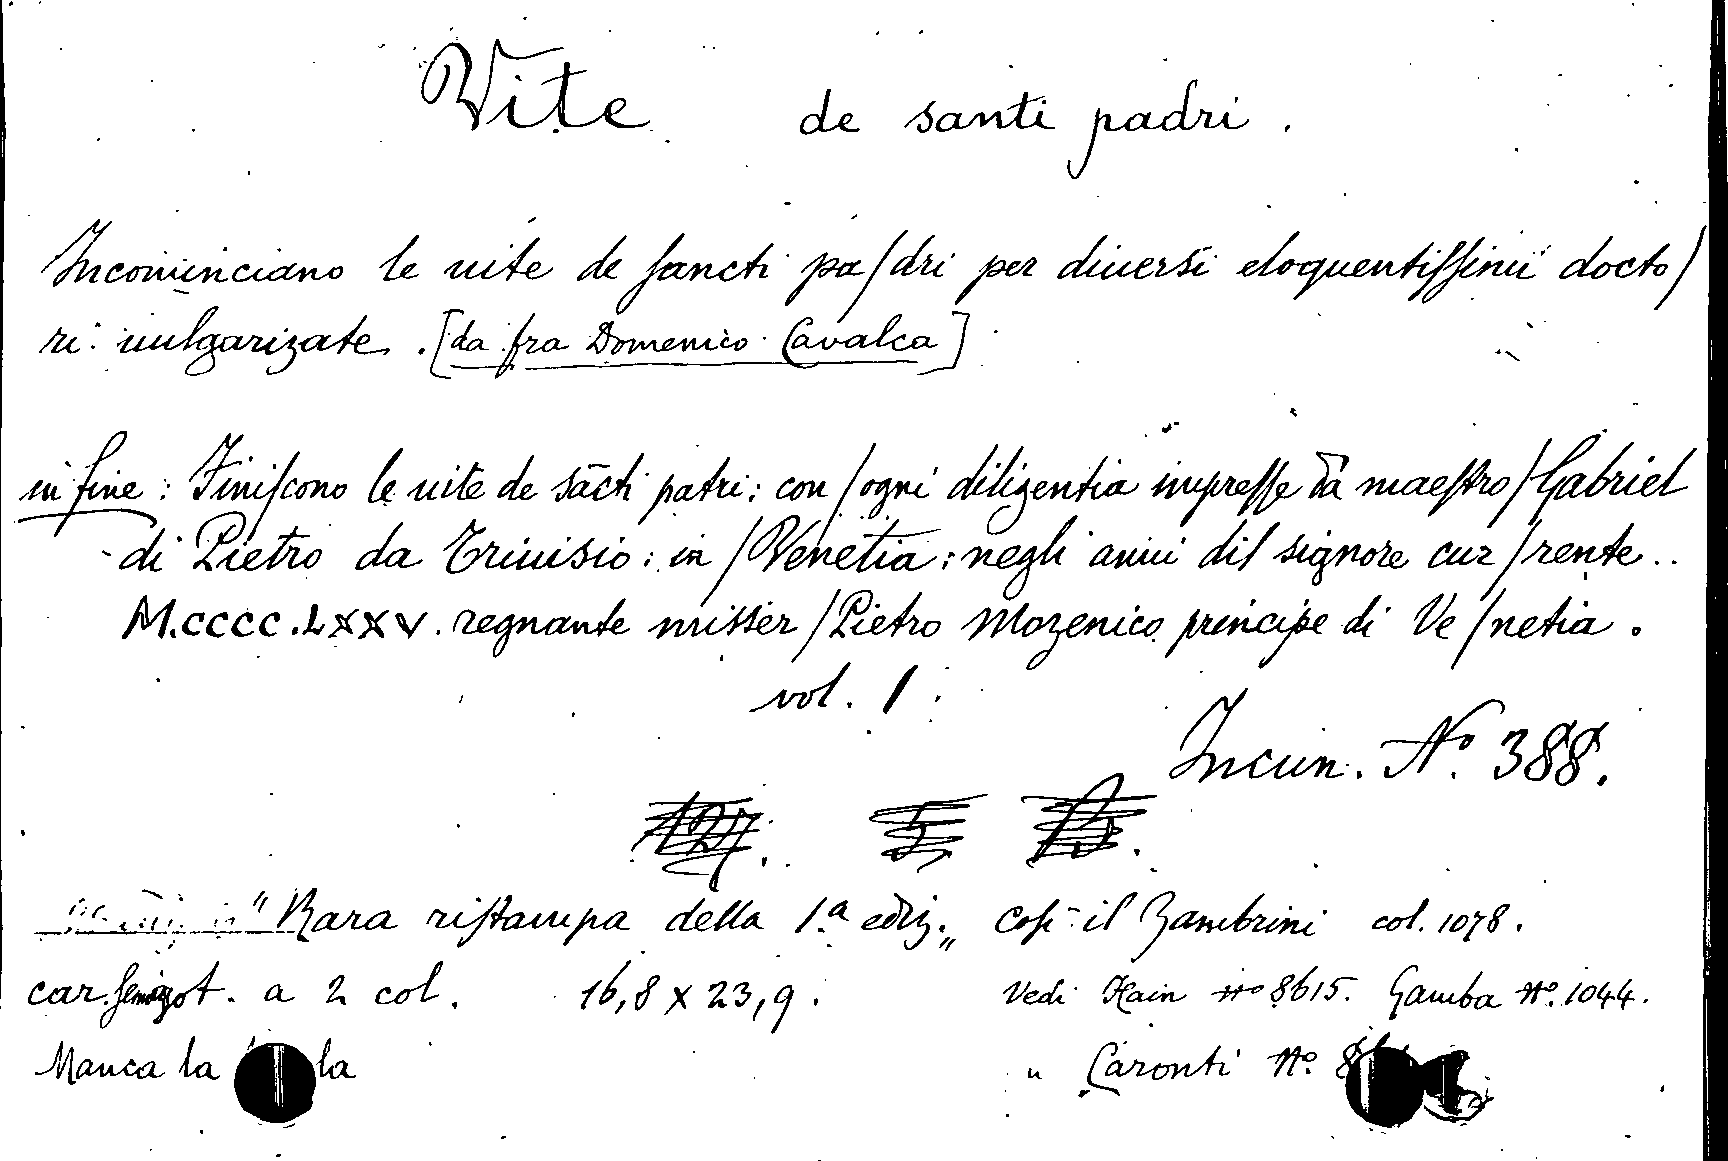 Vite de santi padri.
Incominciano le uite de sancti pa/dri per diuersi eloquentissimi docto/
ri uulgarizate. [da fra Domenico Cavalca]
in fine: Finiscono le uite de sācti patri: con /ogni diligentia impresse da maestro/Gabriel
di Pietro da Triuisio: in /Venetia: negli anni dil signore cur/rente..
M.CCCC.LXXV. regnante misser /Pietro Mozenico principe di Ve/netia.
vol. 1.
Incun. No. 388.
"Rara ristampa della 1.a ediz.„ Così il Zambrini col. 1078.
car. semigot. a 2 col. 16,8 x 23,9. Vedi Hain no 8615. Gamba No. 1044.
Manca la " Caronti No.